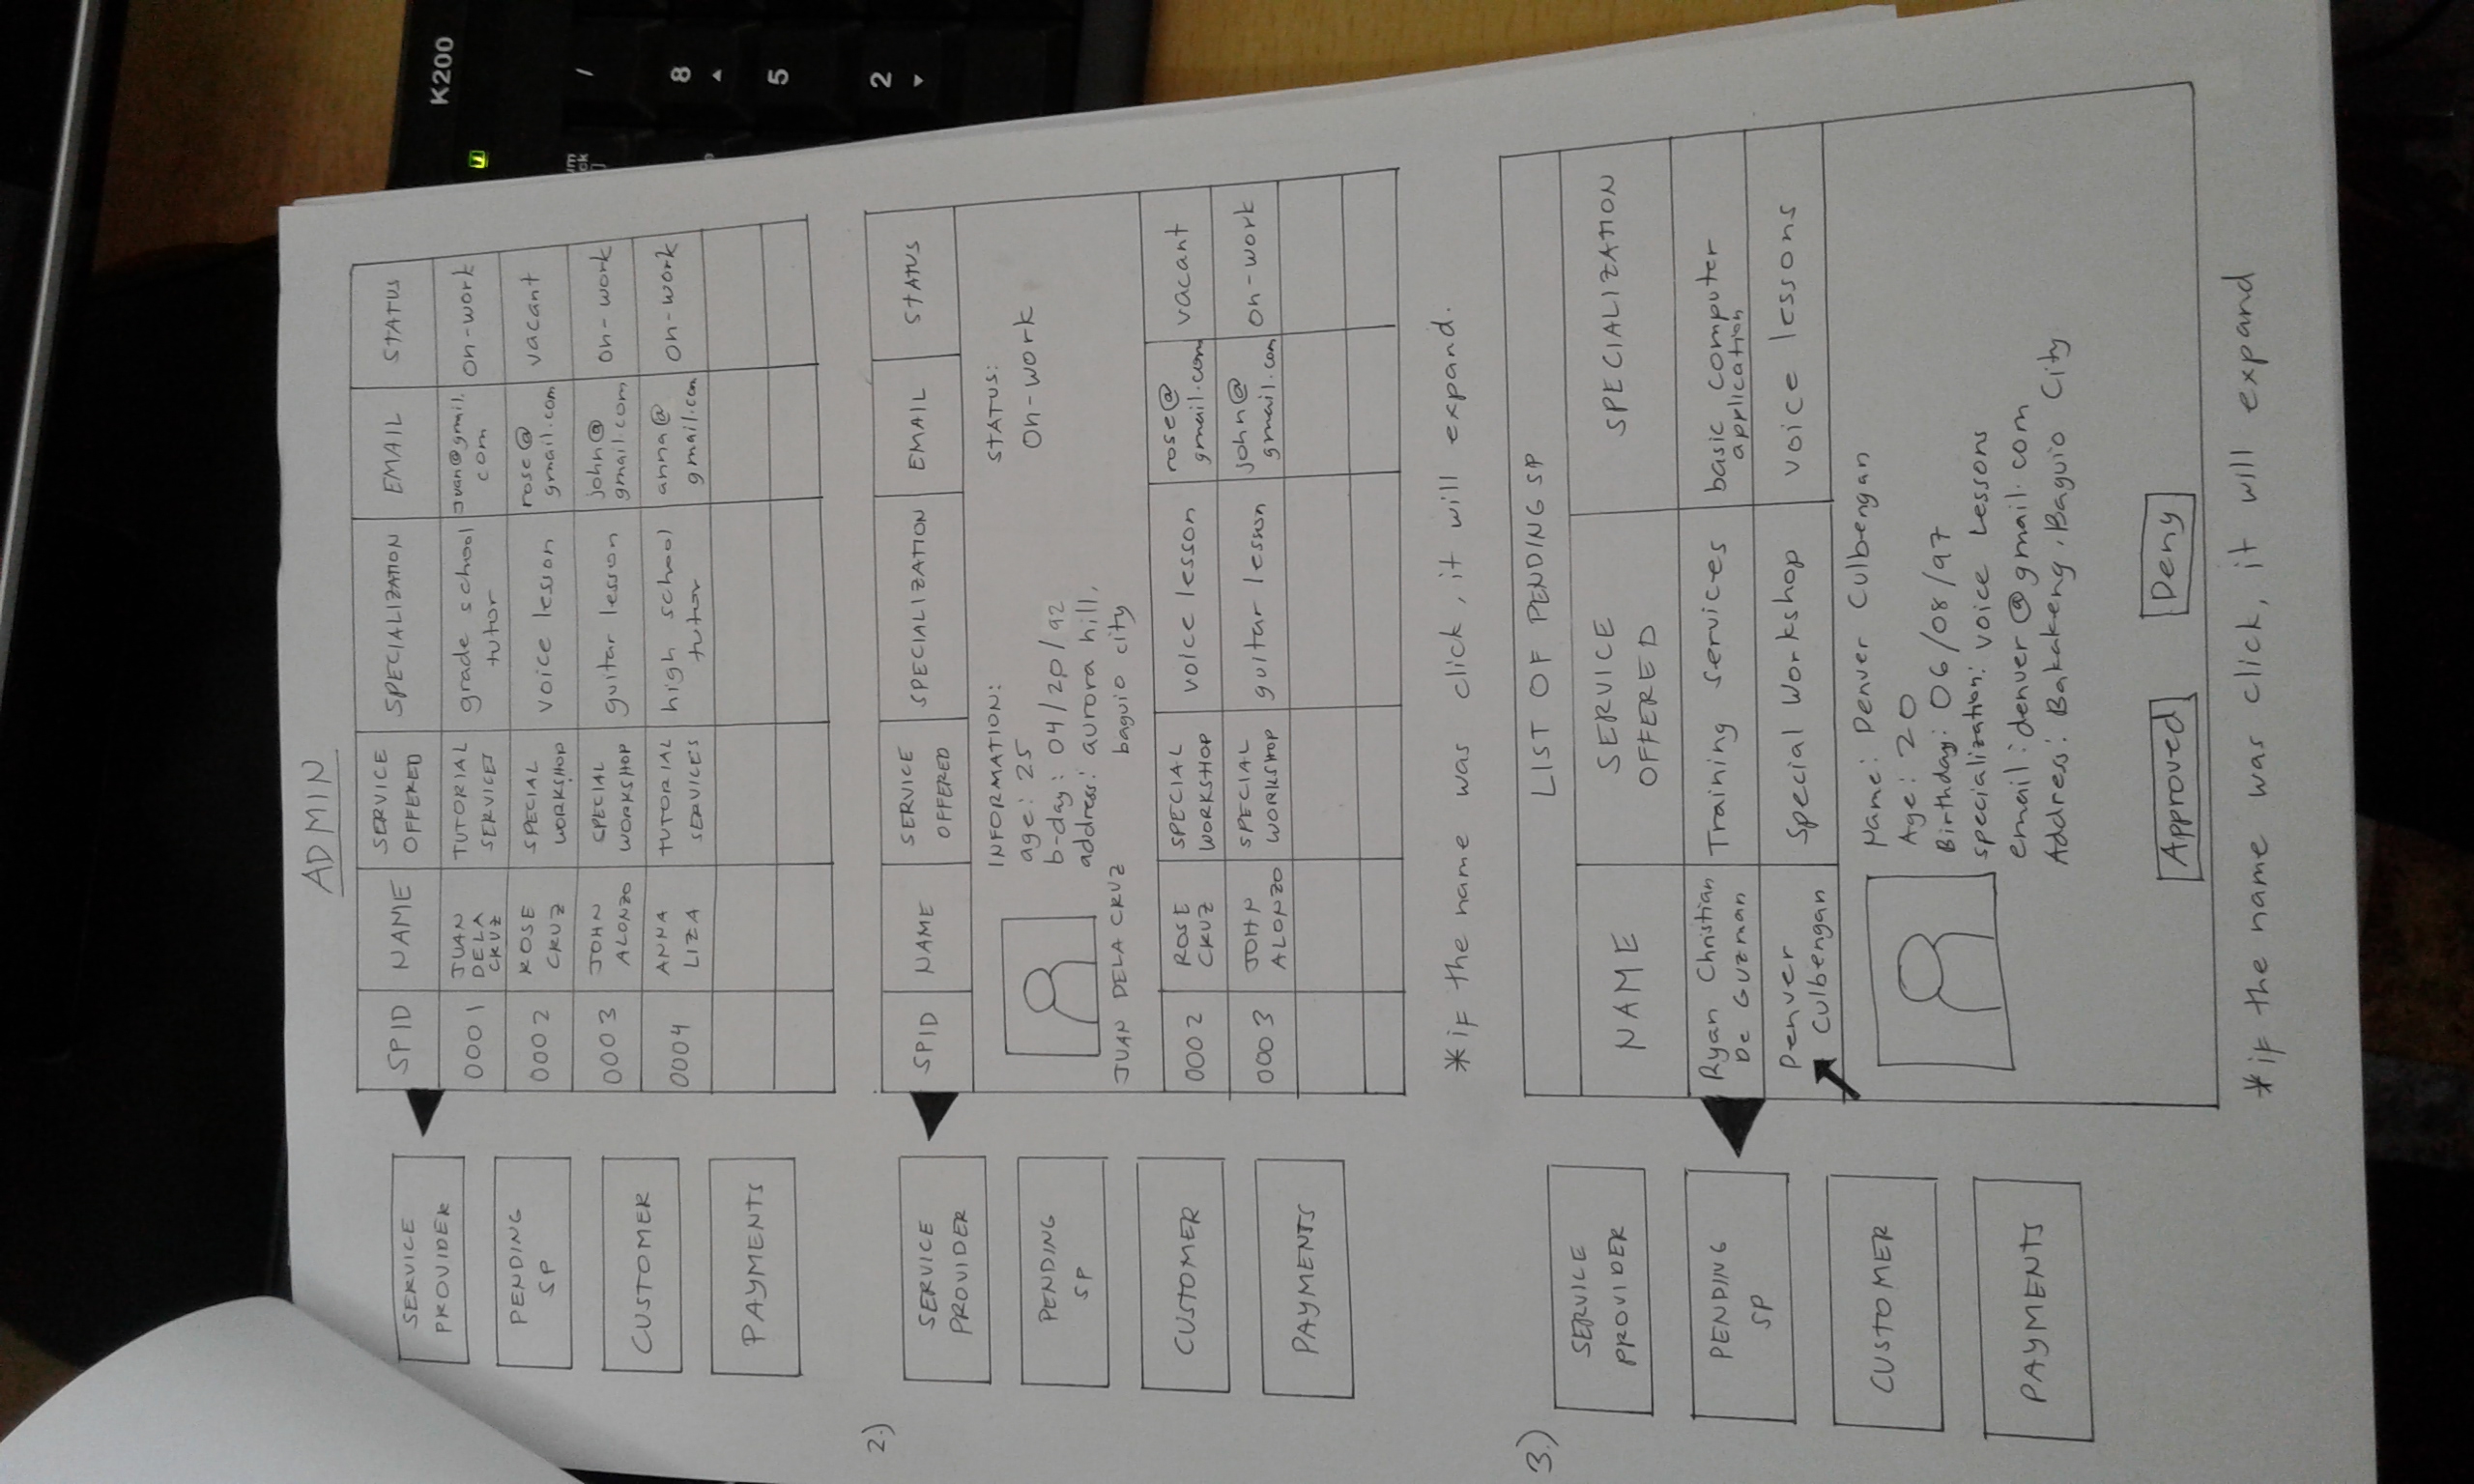 ADMIN
SERVICE
PROVIDER
PENDING
SP
CUSTOMER
PAYMENTS
SPID NAME SERVICE OFFERED SPECIALIZATION EMAIL STATUS
0001 JUAN DELA CRUZ TUTORIAL SERVICES grade school tutor juan@gmail.com on-work
0002 ROSE CRUZ SPECIAL WORKSHOP voice lesson rose@gmail.com vacant
0003 JOHN ALONZO SPECIAL WORKSHOP guitar lesson john@gmail.com on-work
0004 ANNA LIZA TUTORIAL SERVICES high school tutor anna@gmail.com on-work
2.)
SERVICE
PROVIDER
PENDING
SP
CUSTOMER
PAYMENTS
SPID NAME SERVICE OFFERED SPECIALIZATION EMAIL STATUS
INFORMATION:
age: 25
b-day: 04/20/92
address: aurora hill,
baguio city
STATUS:
on-work
JUAN DELA CRUZ
0002 ROSE CRUZ SPECIAL WORKSHOP voice lesson rose@gmail.com vacant
0003 JOHN ALONZO SPECIAL WORKSHOP guitar lesson john@gmail.com on-work
*if the name was click, it will expand.
3.)
SERVICE
PROVIDER
PENDING
SP
CUSTOMER
PAYMENTS
LIST OF PENDING SP
NAME SERVICE OFFERED SPECIALIZATION
Ryan Christian De Guzman Training services basic computer application
Denver Culbengan Special Workshop voice lessons
Name: Denver Culbengan
Age: 20
Birthday: 06/08/97
specialization: voice Lessons
email: denver@gmail.com
Address: Bakakeng, Baguio City
Approved Deny
*if the name was click, it will expand
K200
/
8
5
2